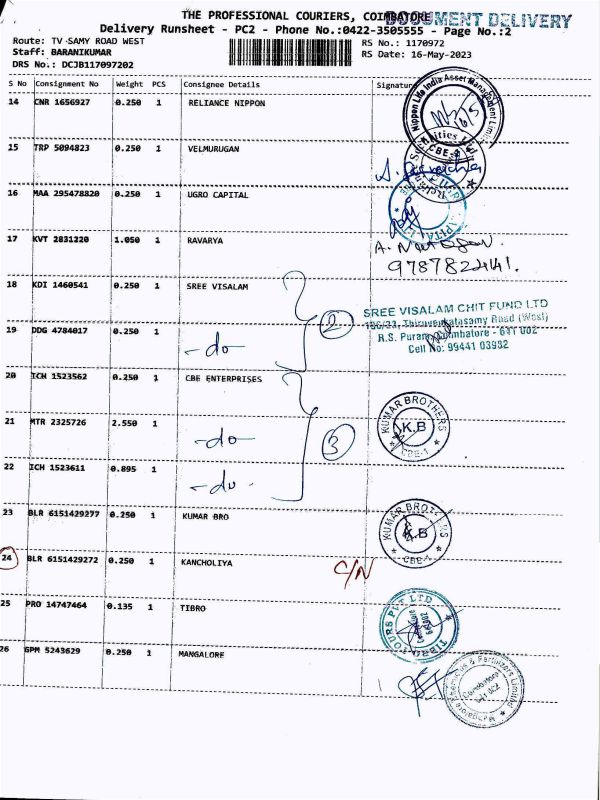 THE PROFESSIONAL COURIERS, COIMBATORE
DOCUMENT DELIVERY
Delivery Runsheet - PC2 - Phone No.:0422-3505555 - Page No.:2
Route: TV SAMY ROAD WEST
RS No.: 1170972
Staff: BARANIKUMAR
RS Date: 16-May-2023
DRS No.: DCJB117097202
S No Consignment No Weight PCS Consignee Details Signature
14 CNR 1656927 0.250 1 RELIANCE NIPPON
Nippon Life India Asset Management Limited
16/5
CBE-
15 TRP 5094823 0.250 1 VELMURUGAN
16 MAA 295478820 0.250 1 UGRO CAPITAL
17 KVT 2831220 1.050 1 RAVARYA
A. Natesan.
9787822441.
18 KDI 1460541 0.250 1 SREE VISALAM
2
SREE VISALAM CHIT FUND LTD
R.S. Puram, Coimbatore - 641 002
Cell No: 99441 03932
19 DDG 4784017 0.250 1 -do-
20 ICH 1523562 0.250 1 CBE ENTERPRISES
3
KUMAR BROTHERS
K.B
CBE-1
21 MTR 2325726 2.550 1 -do-
22 ICH 1523611 0.895 1 -do-
23 BLR 6151429277 0.250 1 KUMAR BRO
KUMAR BROTHERS
K.B
CBE-1
24 BLR 6151429272 0.250 1 KANCHOLIYA C/N
25 PRO 14747464 0.135 1 TIBRO
TIBRO TOURS PVT LTD
26 GPM 5243629 0.250 1 MANGALORE
Mangalore Chemicals & Fertilizers Limited
Coimbatore